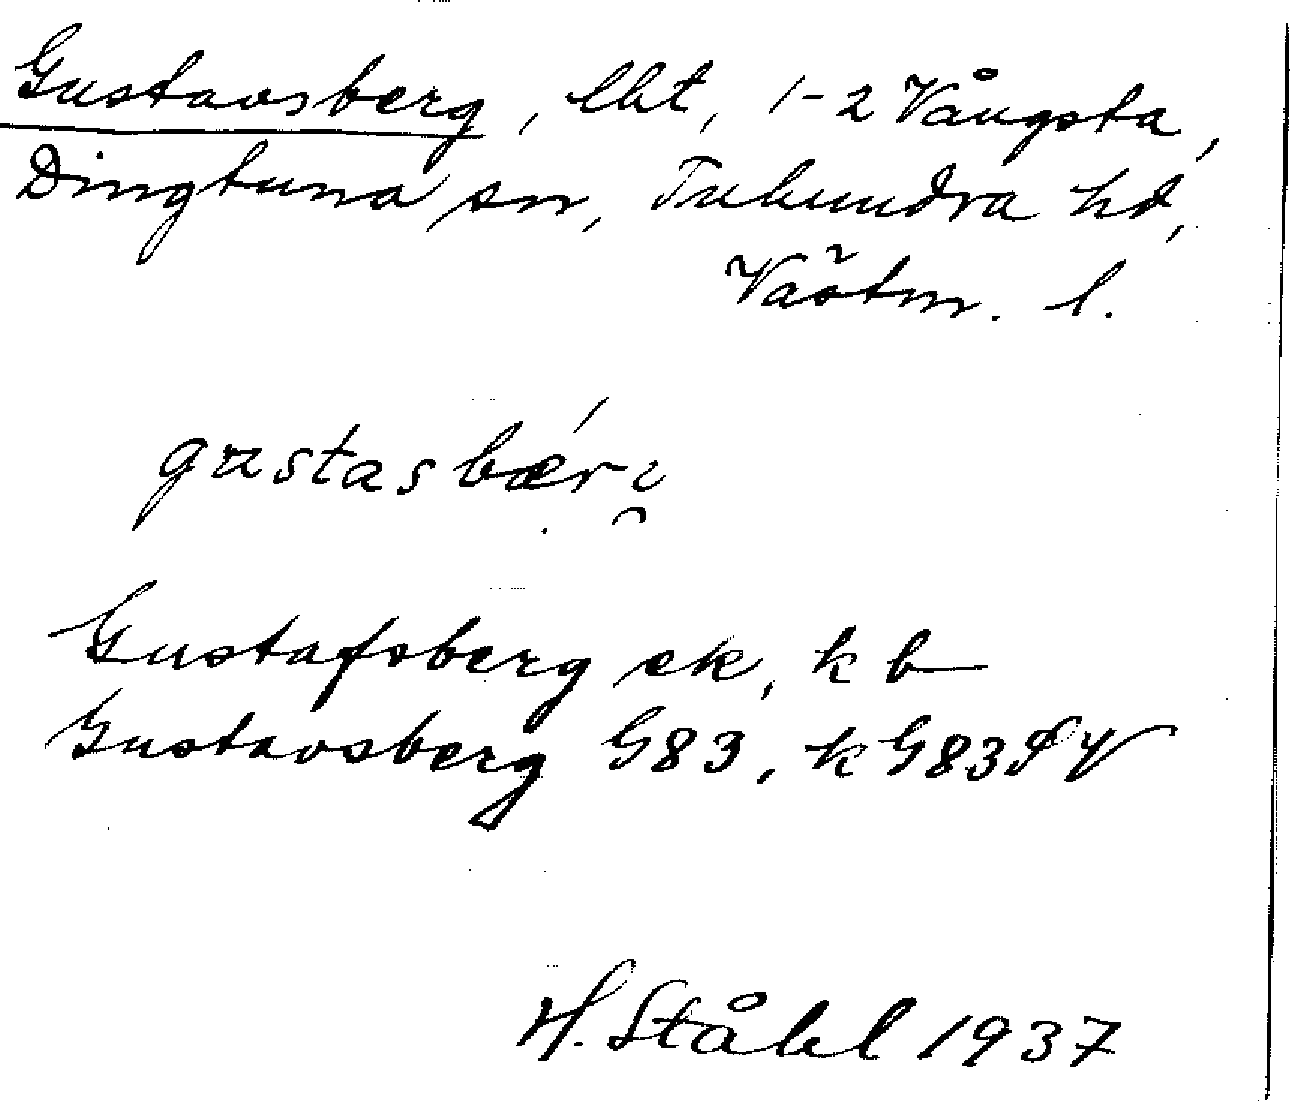 Gustavsberg, lht, 1-2 Vångsta,
Dingtuna sn, Tuhundra hd,
Västm. l.
gustasbær
Gustafsberg ek, k b
Gustavsberg G83, k G83
H. Ståhl 1937